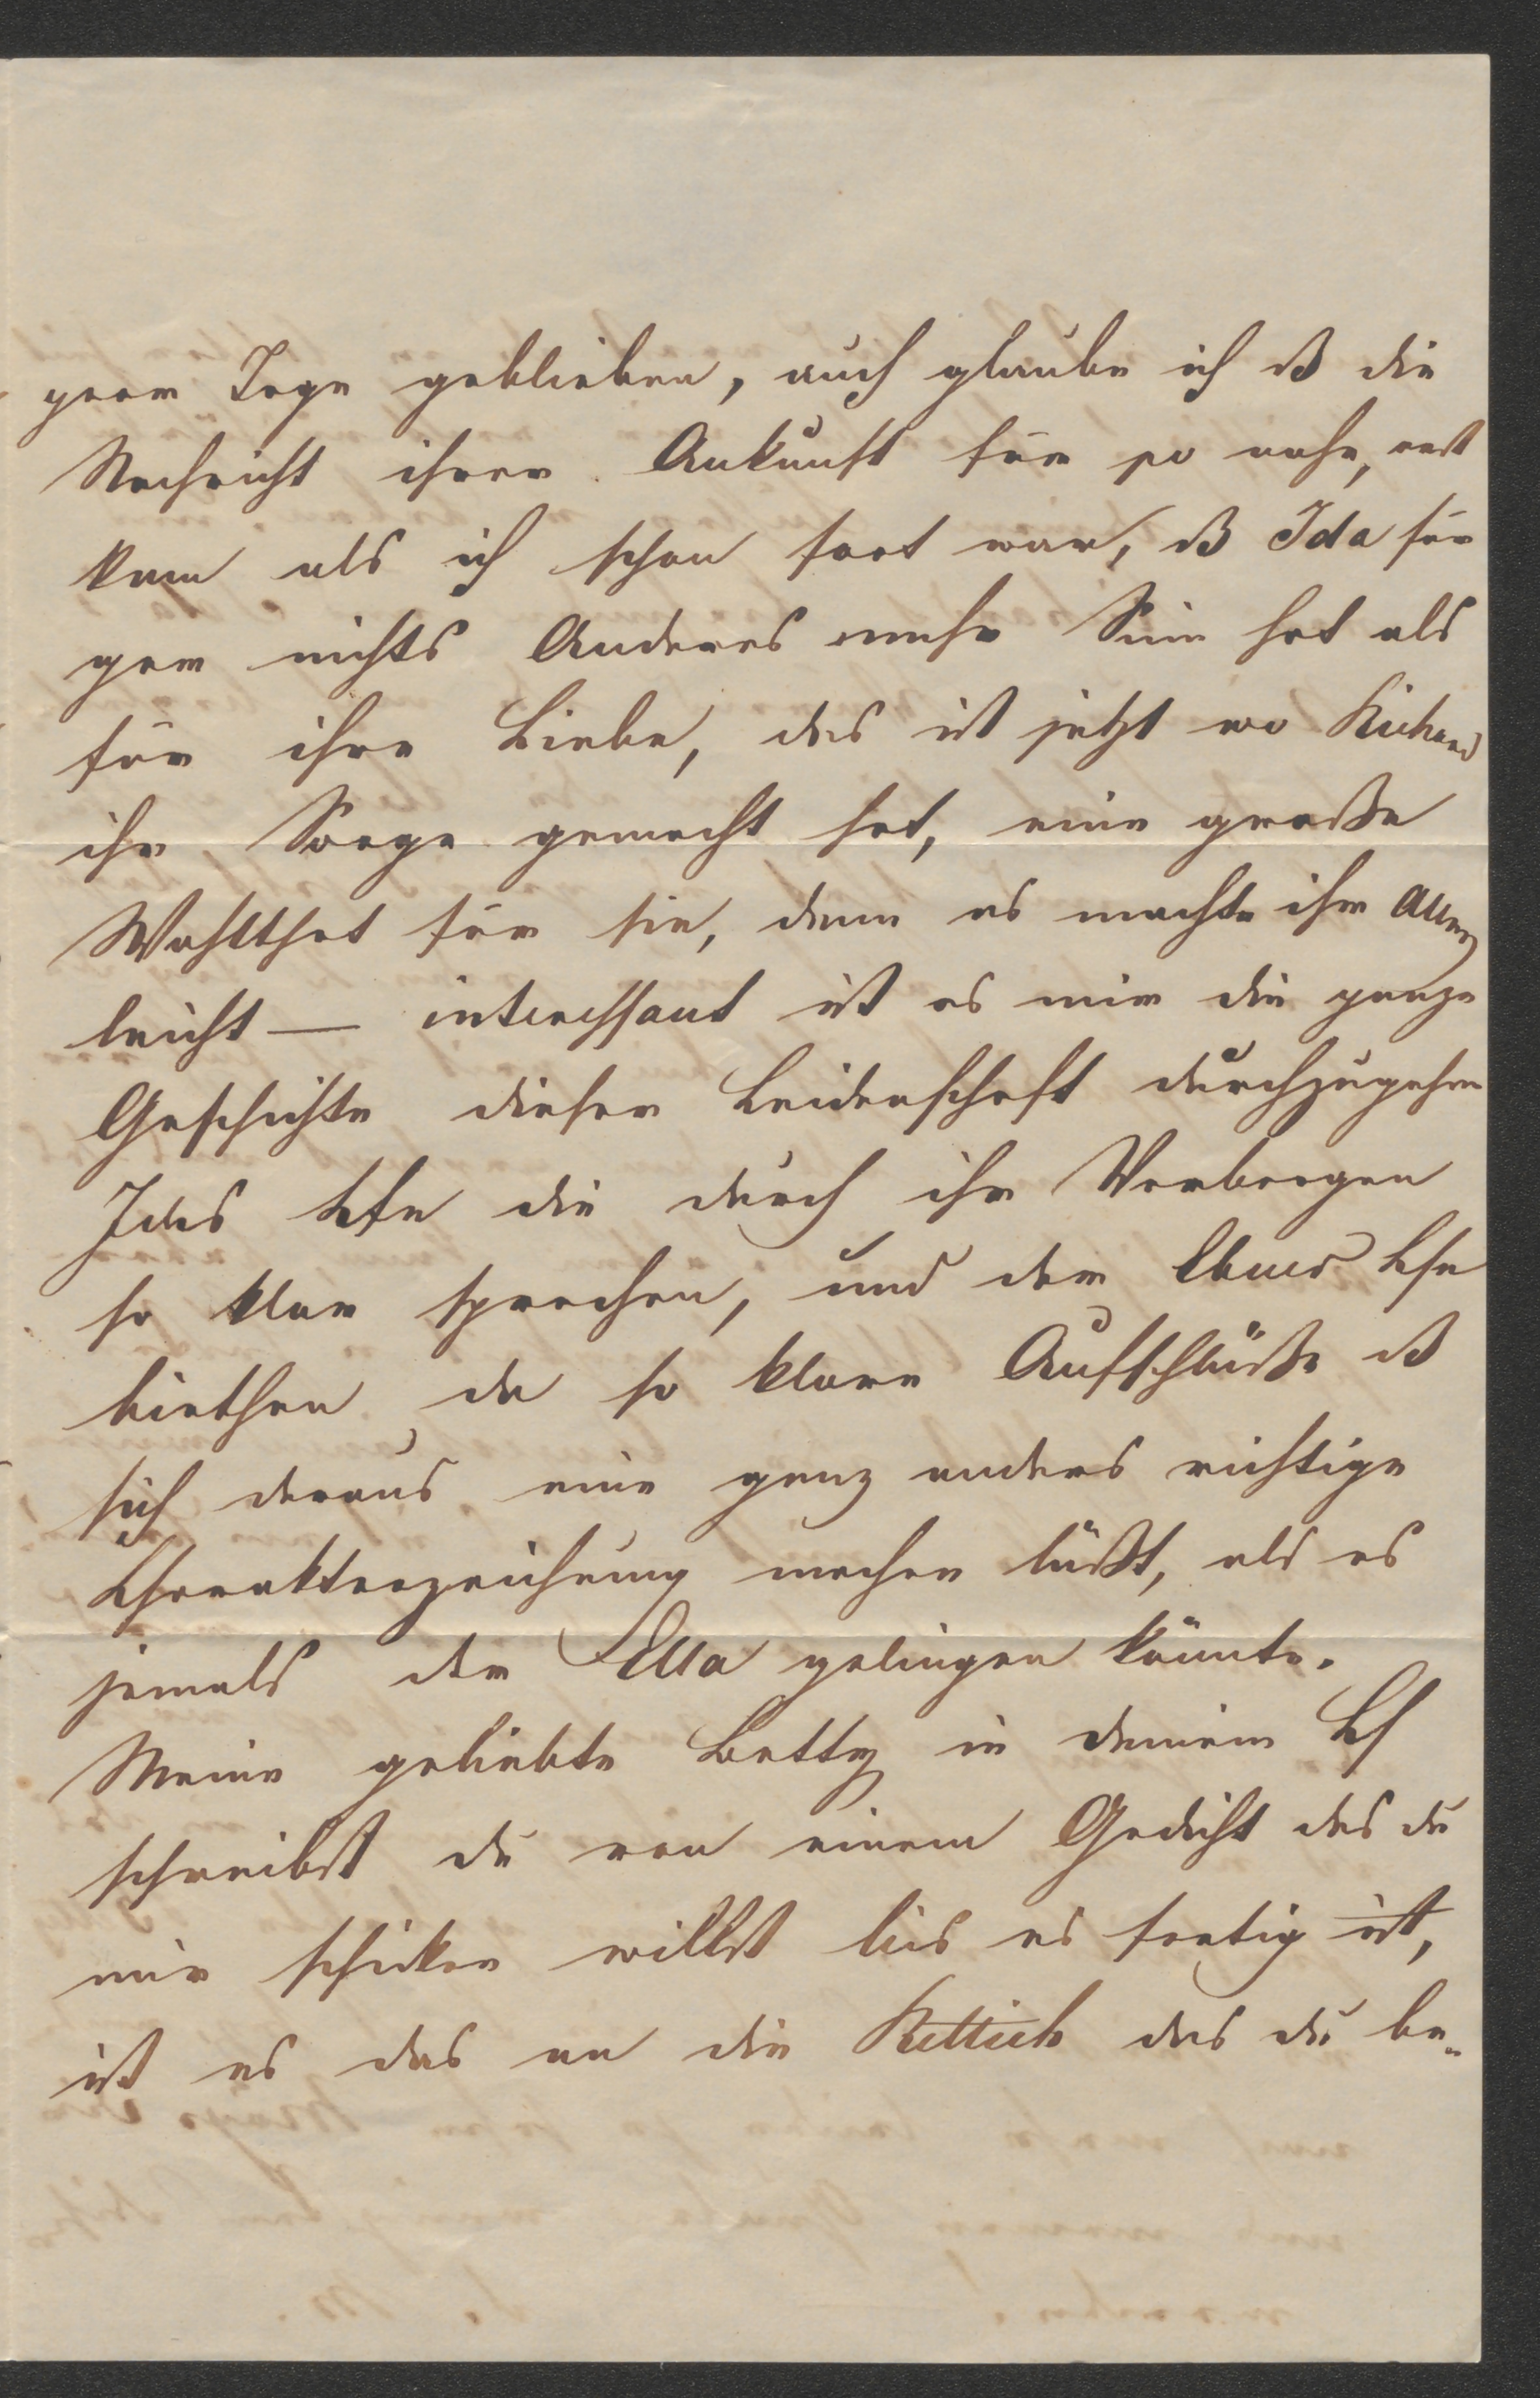 paar Tage geblieben, auch glaube ich ß die
Nachricht ihrer Ankunft für so nahe, erst
kam als ich schon fort war, ß Ida für
gar nichts Anderes mehr Sinn hat als
für ihre Liebe, das ist jetzt wo Richard
ihr Sorge gemacht hat, eine große
Wohlthat für sie, denn es macht ihr Alles
leicht — interessant ist es mir die ganze
Geschichte dieser Leidenschaft durchzugehen
Idas Bfe die durch ihr Verborgen
so klar sprechen, und der Ebner Bfe
biethen da so klare Aufschlüße ß
sich daraus eine ganz anders richtige
Charakterzeichnung machen läßt, als es
jemals der Ella gelingen könnte.
Meine geliebte Betty in deinem Bf
schreibst du von einem Gedicht das du
mir schicken willst bis es fertig ist,
ist es das an die Rettich das du be-